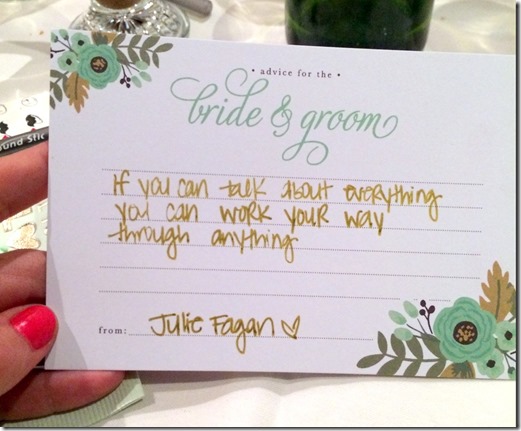 • advice for the •
bride & groom
If you can talk about everything
you can work your way
through anything
from: Julie Fagan ♡
ound Stic